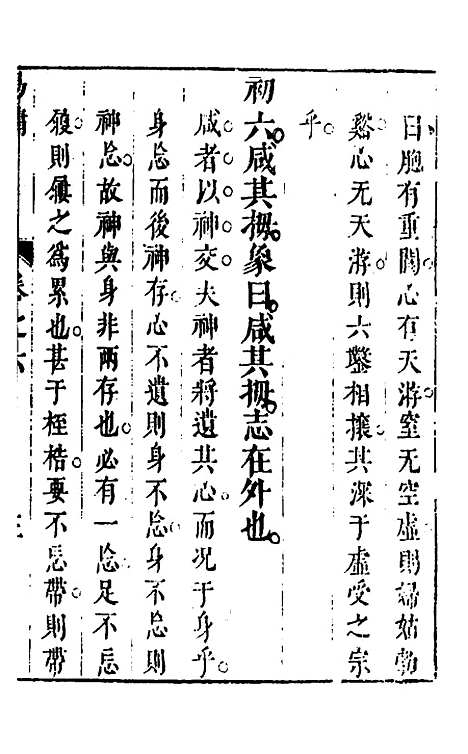 曰胞有重閬心有天游室无空虛則婦姑勃
谿心无天游則六鑿相攘其深于虛受之宗
乎
初六咸其拇象曰咸其拇志在外也
咸者以神交夫神者將遺其心而况于身乎
身忘而後神存心不遺則身不忘身不忘則
神忘故神與身非兩存也必有一忘足不忘
履則屨之爲累也甚于桎梏要不忘帶則帶
卷之六